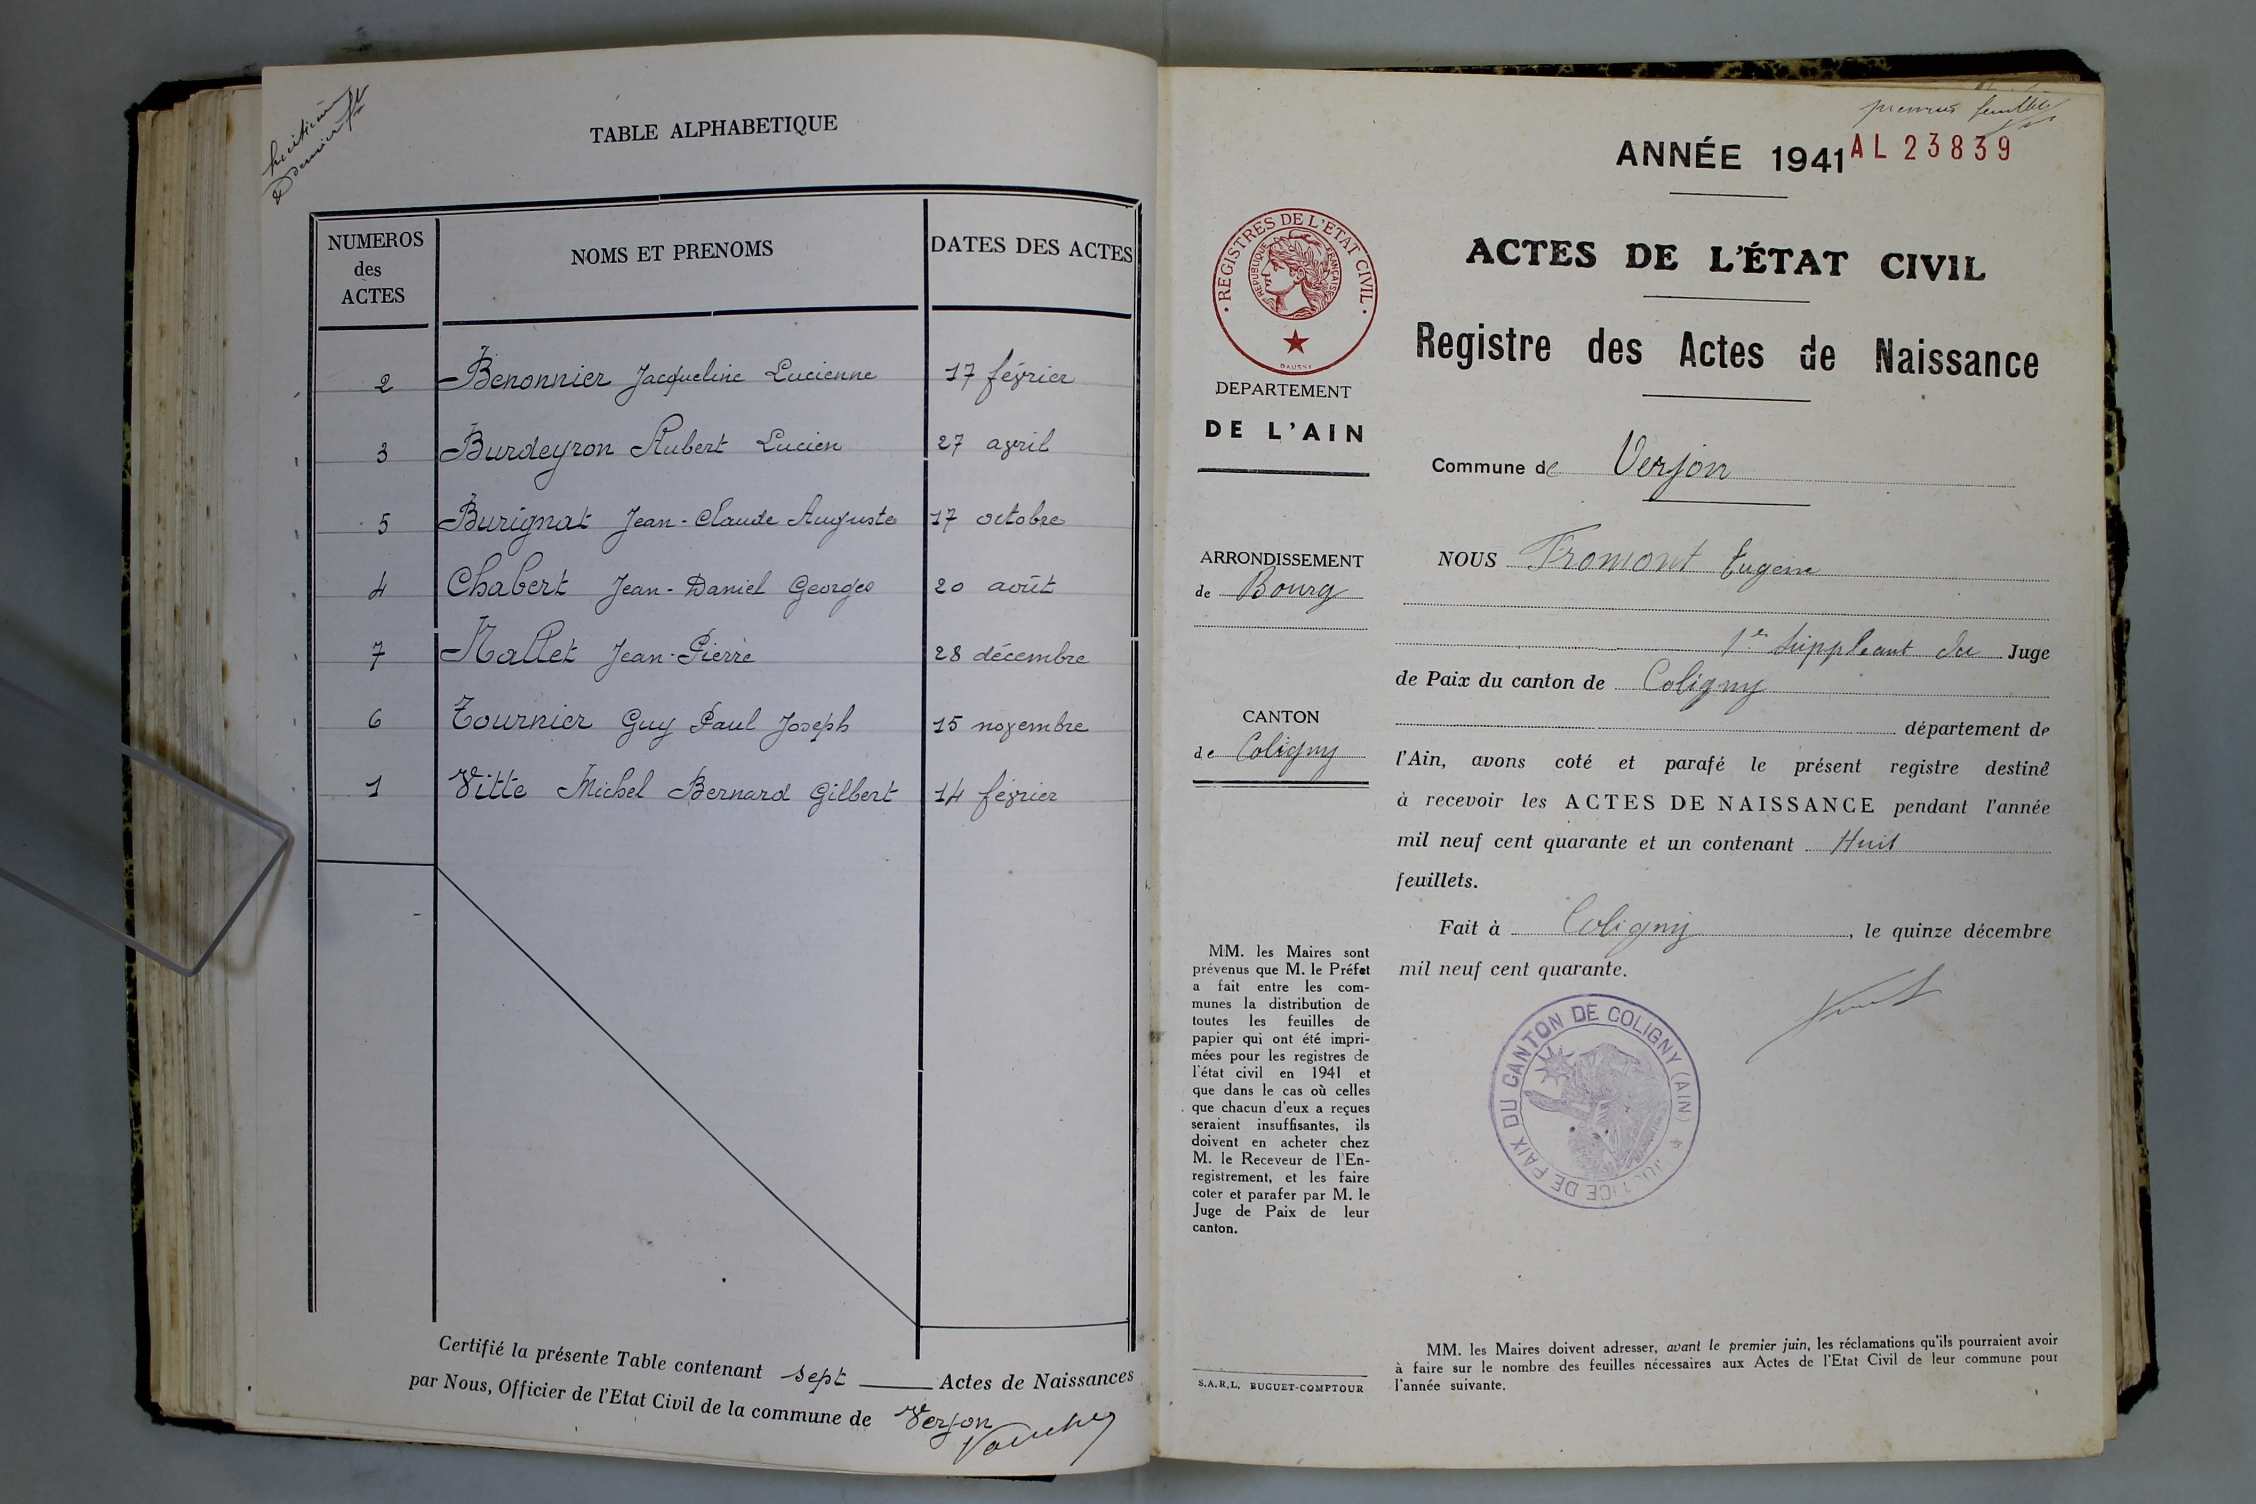 huitième
& dernier fet
TABLE ALPHABETIQUE
NUMEROS
des
ACTES
NOMS ET PRENOMS
DATES DES ACTES
2 Benonnier Jacqueline Lucienne 17 février
3 Burdeyron Hubert Lucien 27 avril
5 Burignat Jean-Claude Auguste 17 octobre
4 Chabert Jean-Daniel Georges 20 août
7 Mallet Jean-Pierre 28 décembre
6 Tournier Guy Paul Joseph 15 novembre
1 Vitte Michel Bernard Gilbert 14 février
Certifié la présente Table contenant sept Actes de Naissances
par Nous, Officier de l'Etat Civil de la commune de Verjon
premier feuillet
ANNÉE 1941
AL 23839
ACTES DE L'ÉTAT CIVIL
Registre des Actes de Naissance
· REGISTRES DE L'ETAT CIVIL ·
REPUBLIQUE FRANÇAISE
DEPARTEMENT
DE L'AIN
Commune de Verjon
ARRONDISSEMENT
de Bourg
CANTON
de Coligny
NOUS Fromont Eugène
1er Suppléant du Juge
de Paix du canton de Coligny
département de
l'Ain, avons coté et parafé le présent registre destiné
à recevoir les ACTES DE NAISSANCE pendant l'année
mil neuf cent quarante et un contenant Huit
feuillets.
Fait à Coligny, le quinze décembre
mil neuf cent quarante.
JUSTICE DE PAIX DU CANTON DE COLIGNY (AIN)
MM. les Maires sont
prévenus que M. le Préfet
a fait entre les com-
munes la distribution de
toutes les feuilles de
papier qui ont été impri-
mées pour les registres de
l'état civil en 1941 et
que dans le cas où celles
que chacun d'eux a reçues
seraient insuffisantes, ils
doivent en acheter chez
M. le Receveur de l'En-
registrement, et les faire
coter et parafer par M. le
Juge de Paix de leur
canton.
S.A.R.L. BUGUET-COMPTOUR
MM. les Maires doivent adresser, avant le premier juin, les réclamations qu'ils pourraient avoir
à faire sur le nombre des feuilles nécessaires aux Actes de l'Etat Civil de leur commune pour
l'année suivante.